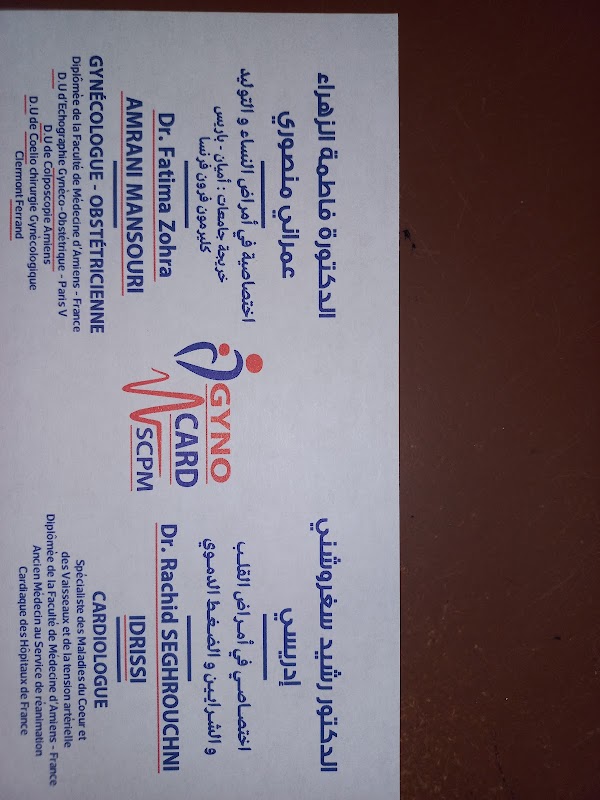 الدكتورة فاطمة الزهراء
عمراني منصوري
اختصاصية في أمراض النساء و التوليد
خريجة جامعات : أميان - باريس
كليرمون فرون فرنسا
Dr. Fatima Zohra
AMRANI MANSOURI
GYNÉCOLOGUE - OBSTÉTRICIENNE
Diplômée de la Faculté de Médecine d'Amiens - France
D.U d'Echographie Gynéco-Obstétrique - Paris V
D.U de Colposcopie Amiens
D.U de Coelio chirurgie Gynécologique
Clermont Ferrand
GYNO
CARD
SCPM
الدكتور رشيد سغروشني
إدريسي
اختصاصي في أمراض القلب
و الشرايين و الضغط الدموي
Dr. Rachid SEGHROUCHNI
IDRISSI
CARDIOLOGUE
Spécialiste des Maladies du Coeur et
des Vaisseaux et de la tension artérielle
Diplômé de la Faculté de Médecine d'Amiens - France
Ancien Médecin au Service de réanimation
Cardiaque des Hôpitaux de France